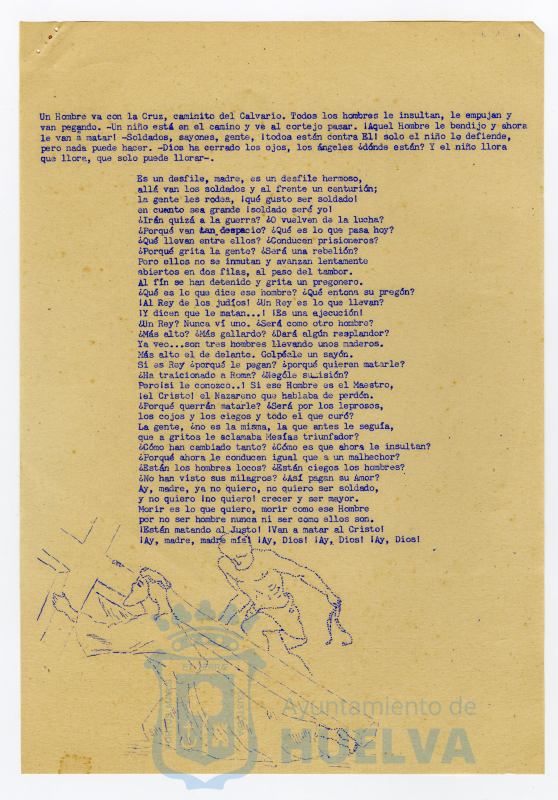 Un Hombre va con la Cruz, caminito del Calvario. Todos los hombres le insultan, le empujan y
van pegando. -Un niño está en el camino y ve al cortejo pasar. ¡Aquel Hombre le bendijo y ahora
le van a matar! -Soldados, sayones, gente, ¡todos están contra El! solo el niño le defiende,
pero nada puede hacer. -Dios ha cerrado los ojos, los ángeles ¿dónde están? Y el niño llora
que llora, que solo puede llorar-.
Es un desfile, madre, es un desfile hermoso,
allá van los soldados y al frente un centurión;
la gente les rodea, ¡qué gusto ser soldado!
en cuanto sea grande ¡soldado seré yo!
¿Irán quizá a la guerra? ¿O vuelven de la lucha?
¿Porqué van tan despacio? ¿Qué es lo que pasa hoy?
¿Qué llevan entre ellos? ¿Conducen prisioneros?
¿Porqué grita la gente? ¿Será una rebelión?
Pero ellos no se inmutan y avanzan lentamente
abiertos en dos filas, al paso del tambor.
Al fín se han detenido y grita un pregonero.
¿Qué es lo que dice ese hombre? ¿Qué entona su pregón?
¡Al Rey de los judíos! ¿Un Rey es lo que llevan?
¡Y dicen que le matan...! ¡Es una ejecución!
¿Un Rey? Nunca ví uno. ¿Será como otro hombre?
¿Más alto? ¿Más gallardo? ¿Dará algún resplandor?
Ya veo...son tres hombres llevando unos maderos.
Más alto el de delante. Golpéale un sayón.
Si es Rey ¿porqué le pegan? ¿porqué quieren matarle?
¿Ha traicionado a Roma? ¿Nególe sumisión?
Pero¡si le conozco..! Si ese Hombre es el Maestro,
¡el Cristo! el Nazareno que hablaba de perdón.
¿Porqué querrán matarle? ¿Será por los leprosos,
los cojos y los ciegos y todo el que curó?
La gente, ¿no es la misma, la que antes le seguía,
que a gritos le aclamaba Mesías triunfador?
¿Cómo han cambiado tanto? ¿Cómo es que ahora le insultan?
¿Porqué ahora le conducen igual que a un malhechor?
¿Están los hombres locos? ¿Están ciegos los hombres?
¿No han visto sus milagros? ¿Así pagan su Amor?
Ay, madre, ya no quiero, no quiero ser soldado,
y no quiero ¡no quiero! crecer y ser mayor.
Morir es lo que quiero, morir como ese Hombre
por no ser hombre nunca ni ser como ellos son.
¡Están matando al Justo! ¡Van a matar al Cristo!
¡Ay, madre, madre mía! ¡Ay, Dios! ¡Ay, Dios! ¡Ay, Dios!
Ayuntamiento de
HUELVA